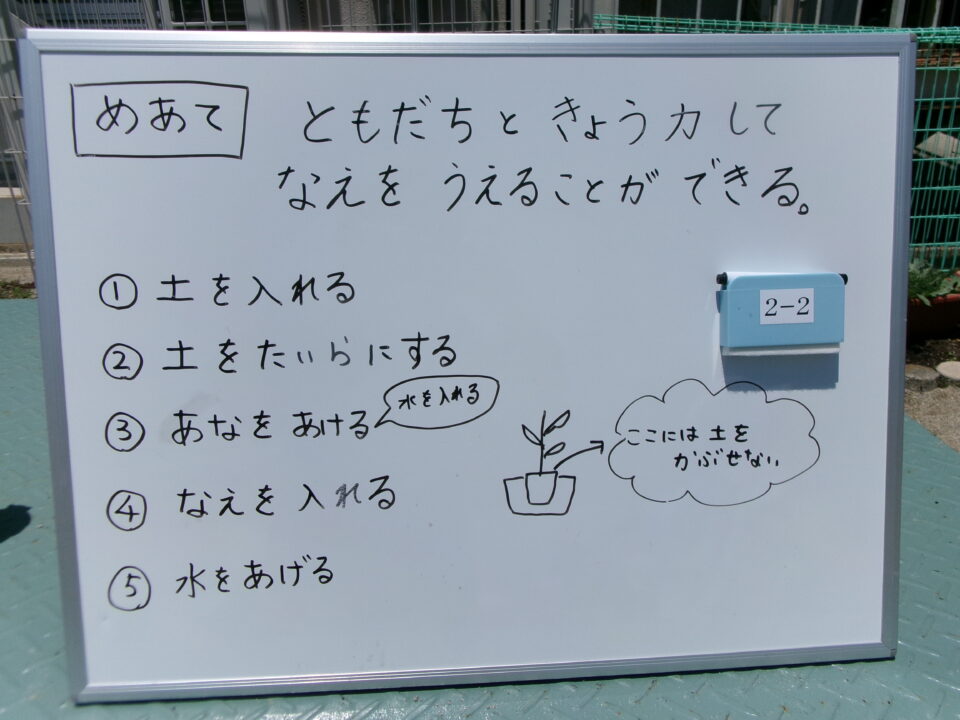 めあて
ともだちときょう力して
なえをうえることができる。
① 土を入れる
② 土をたいらにする
③ あなをあける
水を入れる
④ なえを入れる
⑤ 水をあげる
2-2
ここには土を
かぶせない